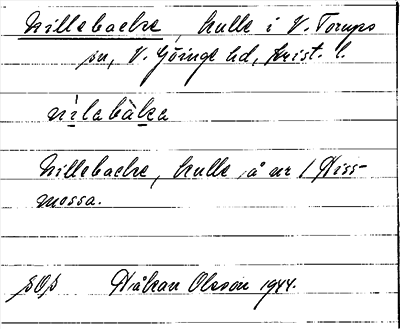 Nillebacke, kulle i V. Torups
sn, V. Göinge hd, Krist. l.
nìlabàka
Nillebacke, kulle å nr 1 Hiss-
mossa.
Håkan Olsson 1944.